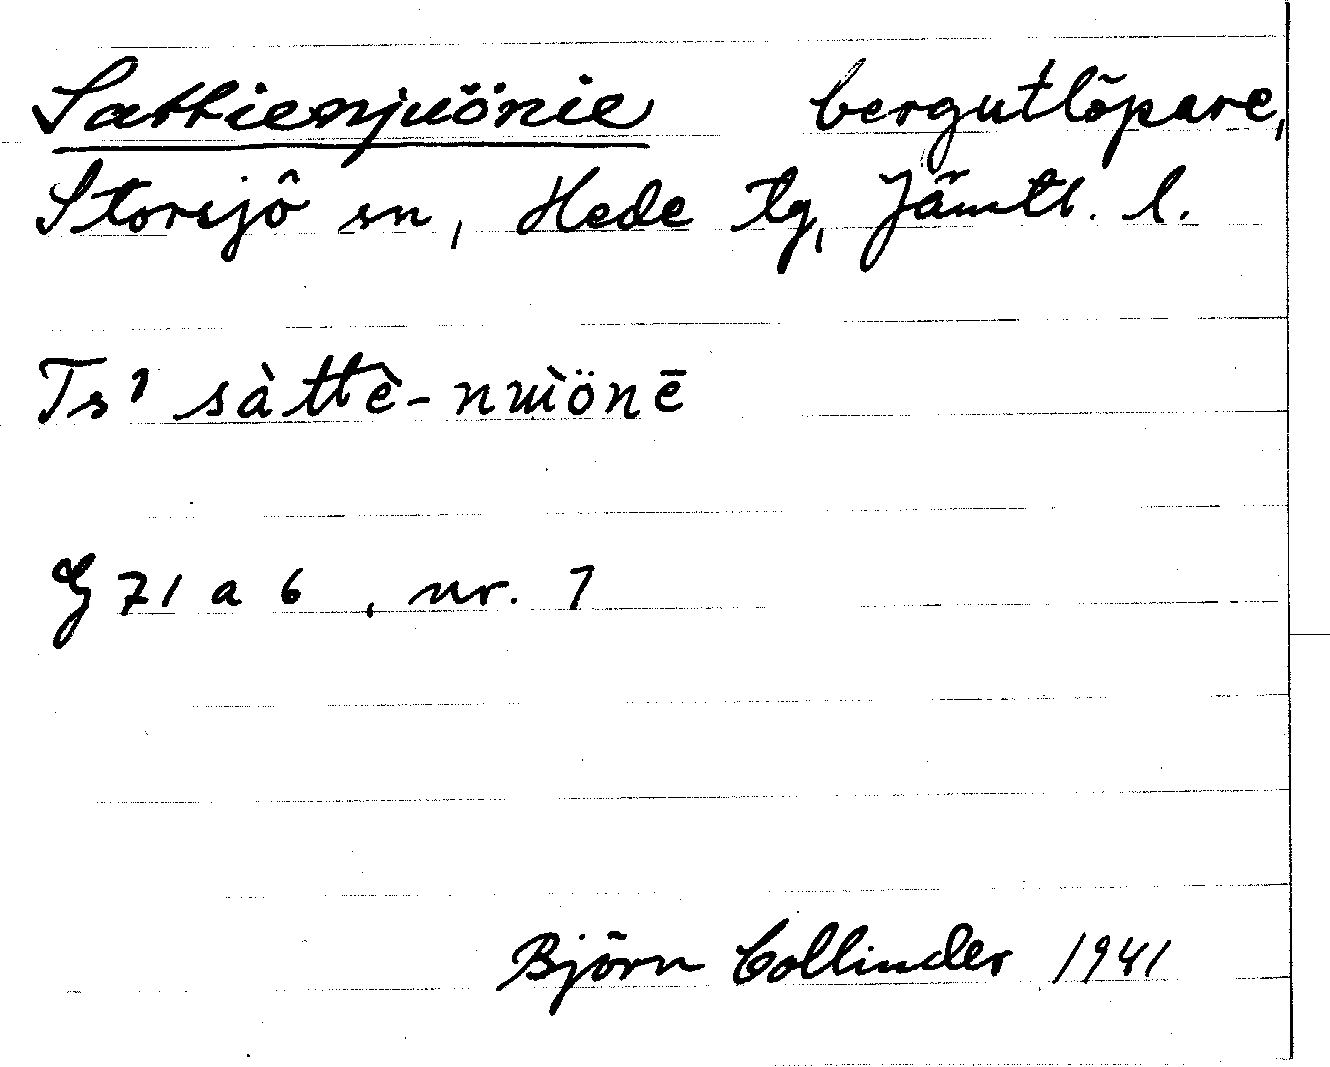 Sattienjuönie bergutlöpare,
Storsjö sn, Hede tg, Jämtl. l.
Ts¹ sàttè-nuìönē
G 71 a 6, nr. 7
Björn Collinder 1941